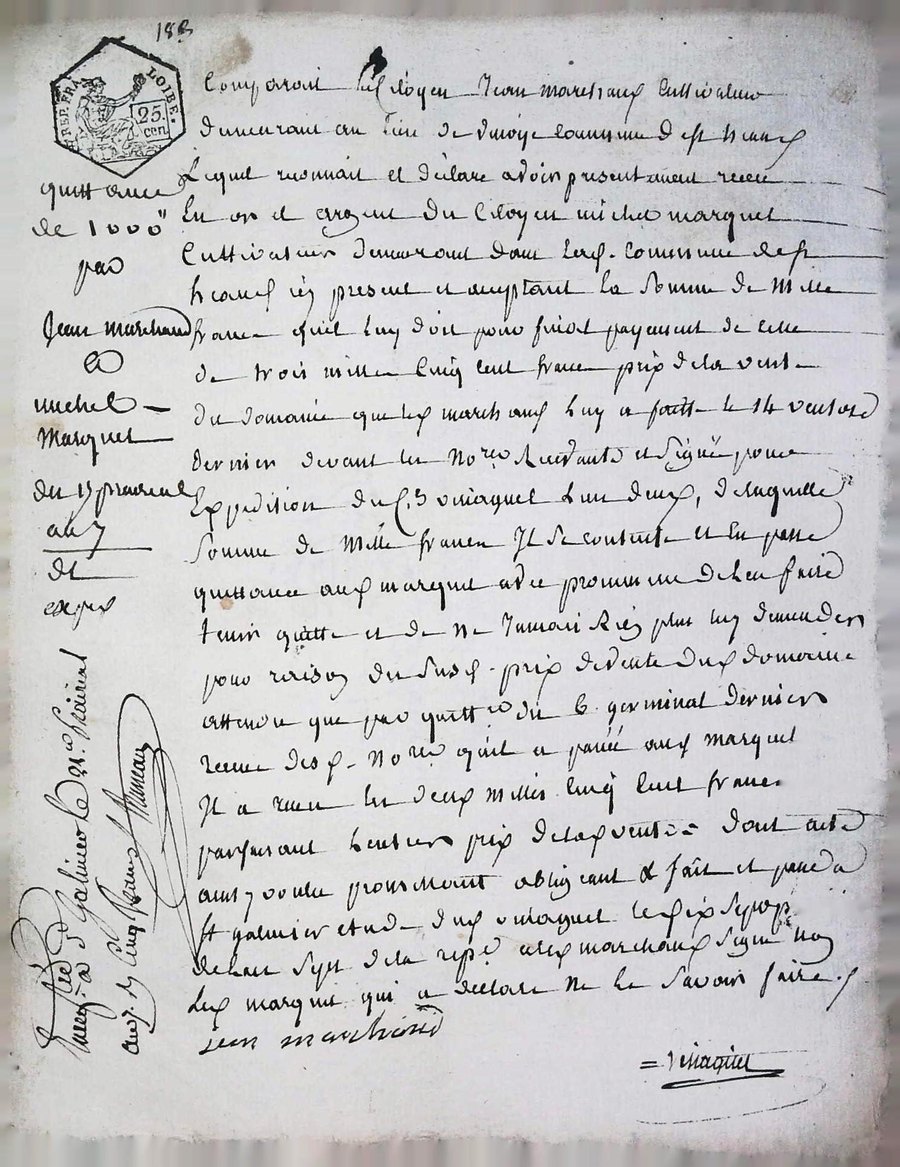 183
REP. FRA. LOIRE.
25. cen
quittance
de 1000"
par
Jean marchand
a
michel
Marquet
du 19 prairial
an 7
dt
exp
Comparait le Citoyen Jean marchand Cultivateur
demeurant au lieu de commune de st
Lequel reconnait et déclare avoir presentement receu
En or et argent du Citoyen michel marquet
Cultivateur demeurant dans commune de st
present et acceptant la somme de Mille
francs qu'il luy doit pour final payement de celle
de trois mille Cinq cent francs prix de la vente
du domaine que led marchand luy a faitte le 14 ventose
dernier devant les Nore Recevante et Signé pour
Expedition du Cn vinaquet L'un deux, de laquelle
Somme de Mille francs Il se contente et En passe
quittance aud marquet avec promesse de l'en faire
tenir quitte et de Ne Jamais Rien plus luy demander
pour raison du Susd. prix de vente dud domaine
attendu que par quittce du 6 germinal dernier
receue desd. Nore qu'il a passé aud marquet
Il a receu les deux Mille Cinq Cent francs
parfaisant L'entier prix de lad vente = dont acte
ainsy voulu promettant obligeant & fait et passé a
st galmier etude dud vinaquet le dix
de l'an Sept de la repe led marchand Signé non
Led marquet qui a declaré Ne le Savoir faire.
jean marchand
= vinaquet
a St Galmier le 21 prairial
an 7. Cinq francs